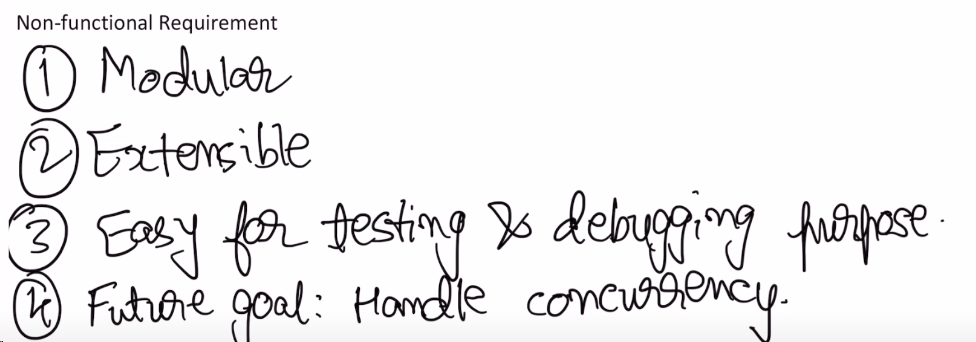 Non-functional Requirement
① Modular
② Extensible
③ Easy for testing & debugging purpose.
④ Future goal: Handle concurrency.